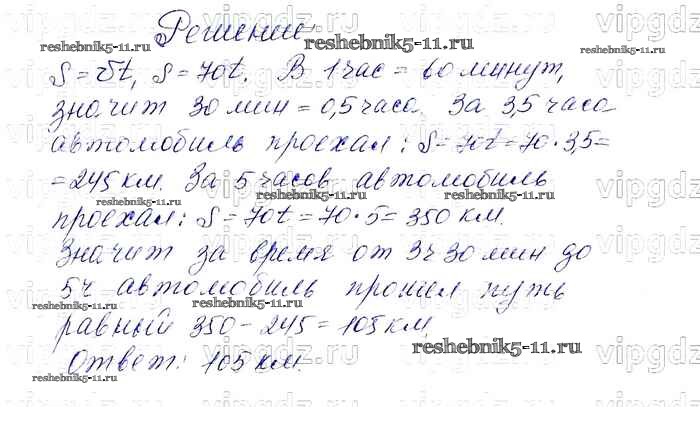 Решение
S = vt, S = 70t. В 1 час = 60 минут,
значит 30 мин = 0,5 часа. За 3,5 часа
автомобиль проехал: S = 70t = 70 · 3,5 =
= 245 км. За 5 часов автомобиль
проехал: S = 70t = 70 · 5 = 350 км.
Значит за время от 3ч 30 мин до
5ч автомобиль прошел путь
равный 350 - 245 = 105 км.
Ответ: 105 км.
reshebnik5-11.ru
reshebnik5-11.ru
reshebnik5-11.ru
reshebnik5-11.ru
reshebnik5-11.ru
reshebnik5-11.ru
reshebnik5-11.ru
reshebnik5-11.ru
vipgdz.ru